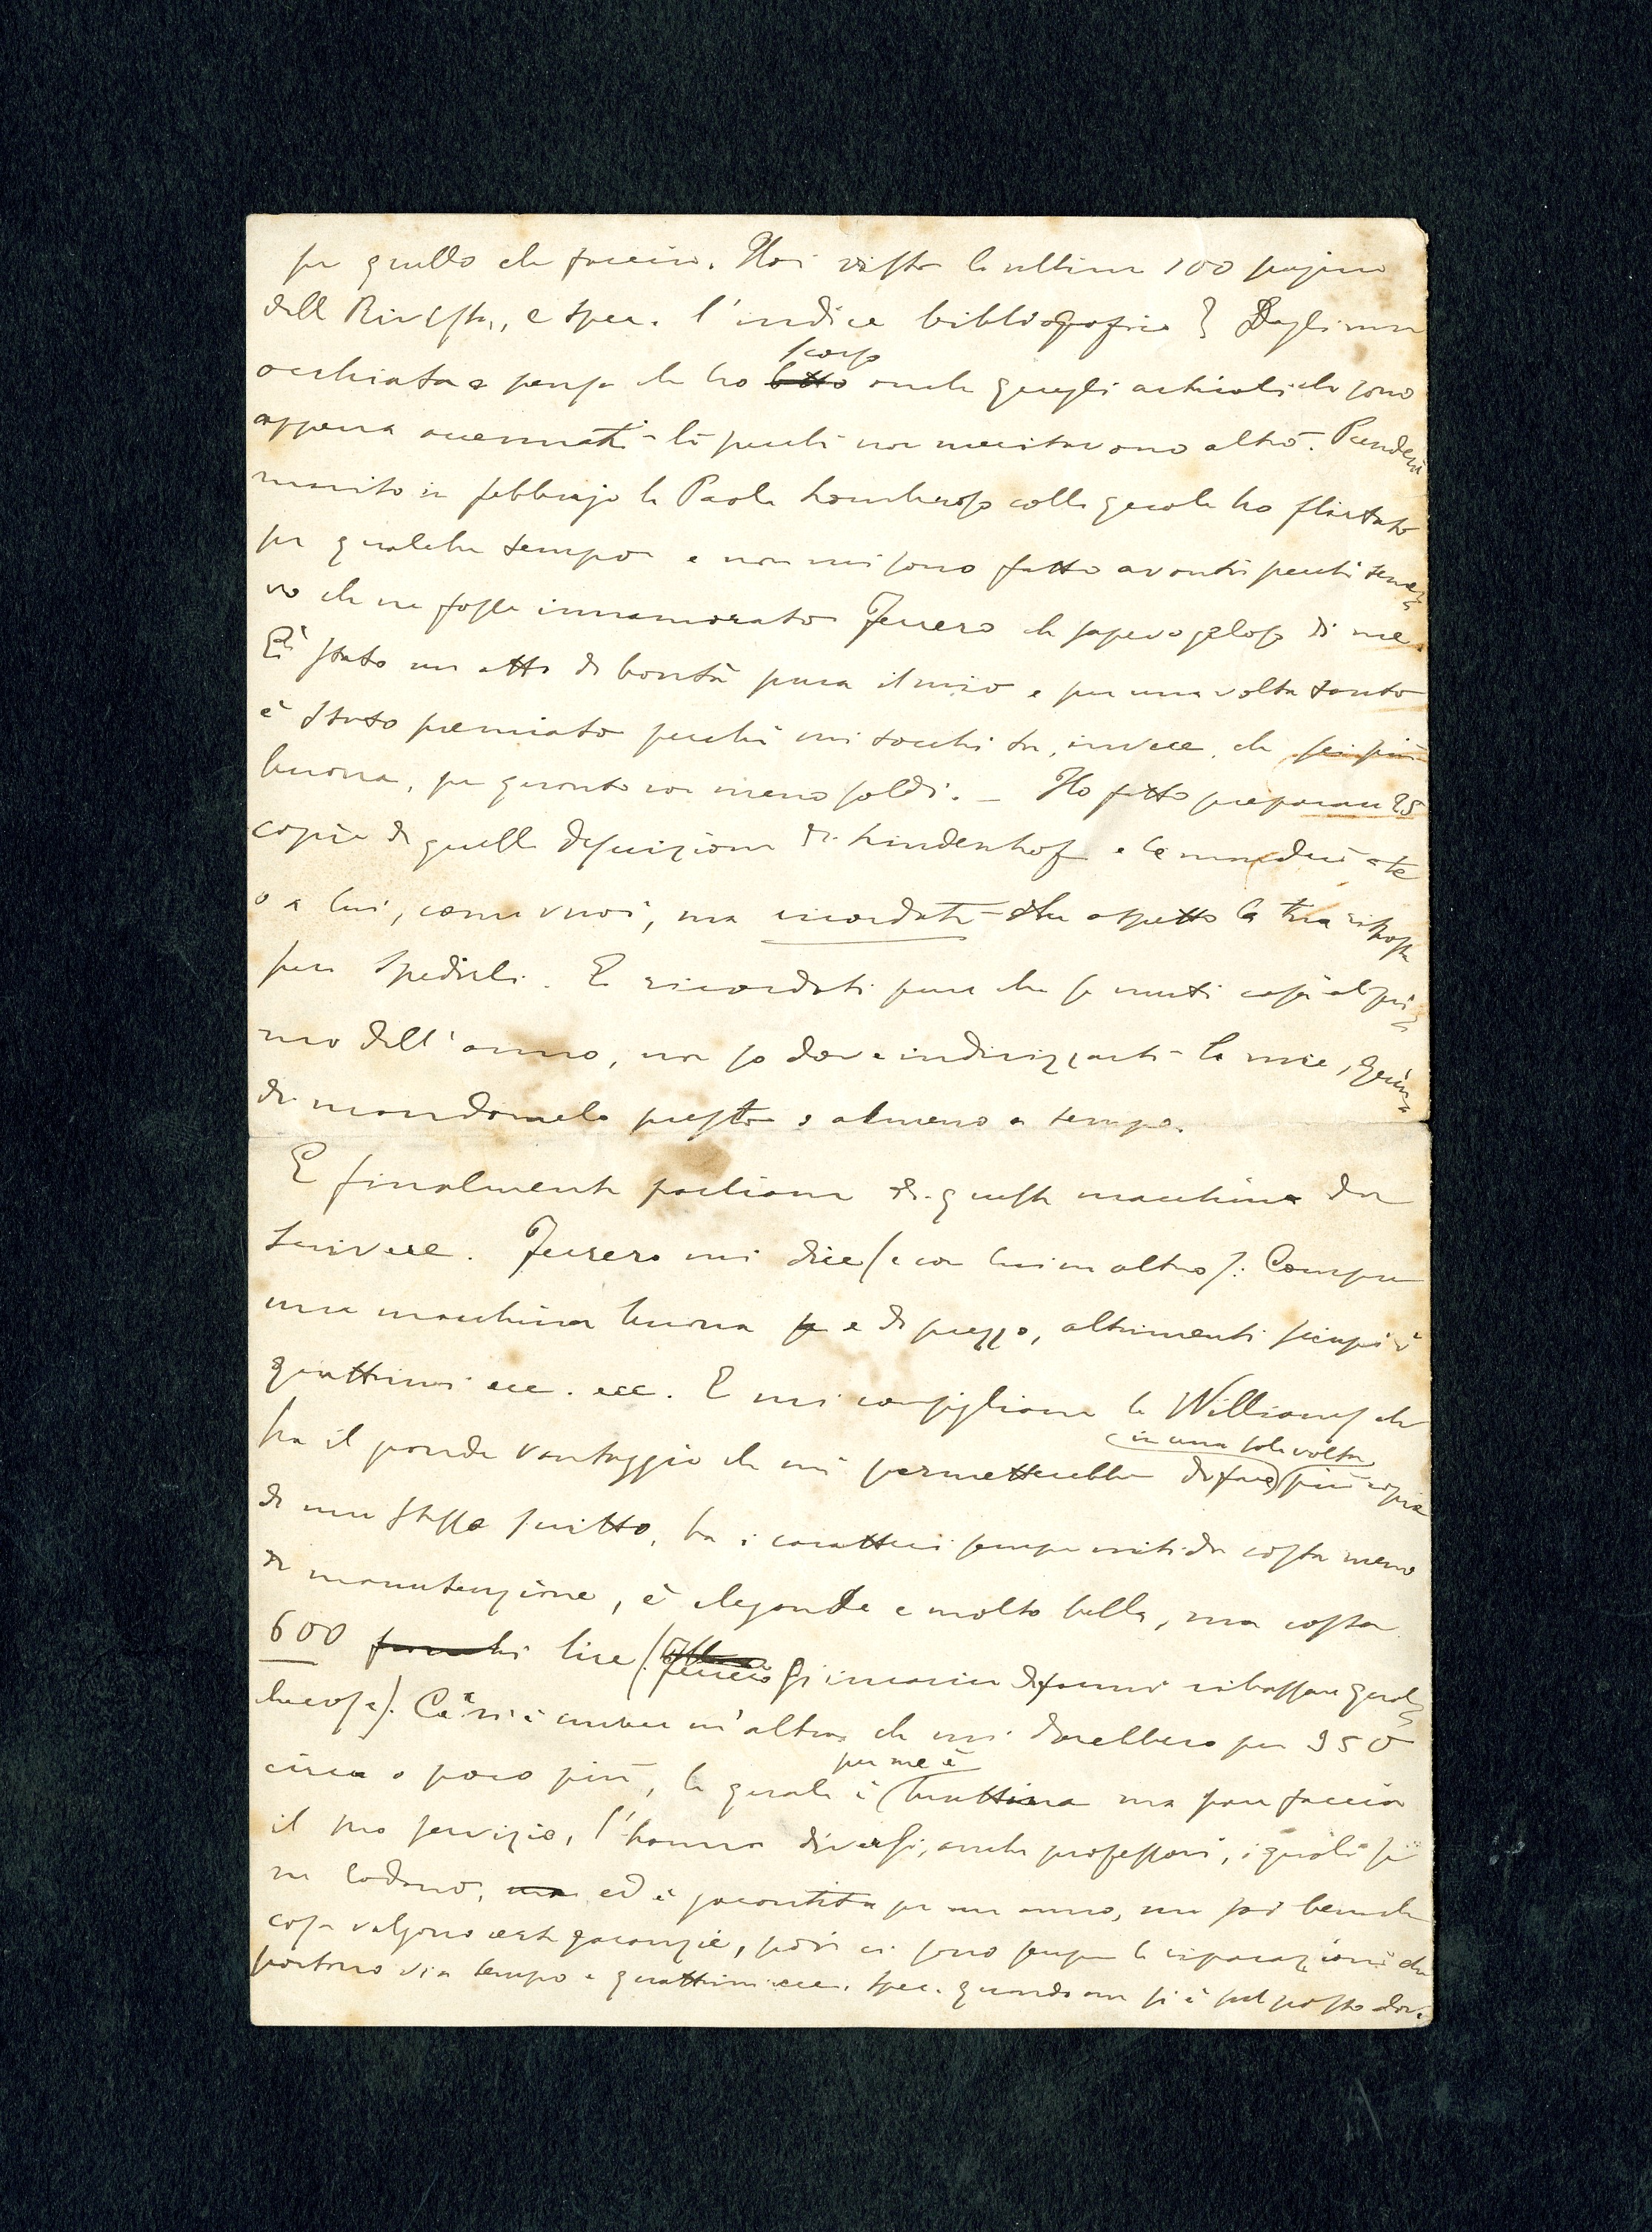 per quello che faccio. Hai visto le ultime 100 pagine
della Rivista, e spec. l'indice bibliografico? Dagli una
occhiata e pensa che ho letto scorso anche quegli articoli che sono
appena accennati - lì perché non meritavano altro. Prenderà
marito in febbrajo la Paola Lombroso colla quale ho flirtato
per qualche tempo e non mi sono fatto avanti perché teme-
vo che ne fosse innamorato Ferrero che sapevo geloso di me.
È stato un atto di bontà pura il mio e per una volta tanto
è stato premiato perché mi tocchi tu, invece, che sei più
buona, per quanto con meno soldi. - Ho fatto preparare 25
copie di quella descrizione di Lindenhof e le manderò a te
o a lui, come vuoi, ma ricordati che aspetto la tua risposta
per spedirli. E ricordati pure che se muti casa al pri-
mo dell'anno, non so dove indirizzarti la mia, quin-
di mandamelo presto o almeno a tempo.
E finalmente parliamo di questa macchina da
scrivere. Ferrero mi dice (e con lui un altro): Compra
una macchina buona e di prezzo, altrimenti sciupi i
quattrini ecc. ecc. E mi consigliano la Williams che
ha il grande vantaggio che mi permetterebbe di fare in una sola volta più copie
di uno stesso scritto, ha i caratteri sempre nitidi costa meno
di manutenzione, è elegante e molto bella, ma costa
600 franchi lire (Ferrero si incarica di farmi ribassare qual-
checosa). Ce n'è invece un'altra che mi darebbero per 350
circa o poco più, la quale è per me è bruttina ma pare faccia
il suo servizio, l'hanno diversi, anche professori, i quali se
ne lodano, ma ed è garantita per un anno, ma sai bene che
cosa valgono certe garanzie, poi ci sono sempre le riparazioni che
portano via tempo e quattrini ecc. spec. quando non si è sul posto dove